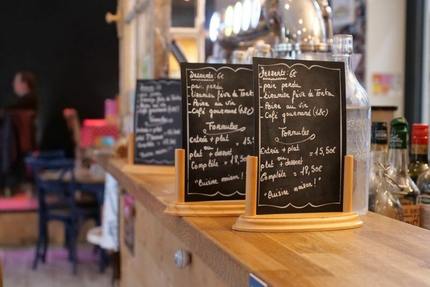 Desserts: 6€
- pain perdu
- tiramisu fève de Tonka
- Poire au vin
- Café gourmand (+2€)
Formules
entrée + plat
ou
plat + dessert = 15,50€
Complète = 18,50€
"Cuisine maison!"
Desserts: 6€
- pain perdu
- tiramisu fève de Tonka
- Poire au vin
- Café gourmand (+2€)
Formules
entrée + plat
ou
plat + dessert = 15,5
Complète = 18,50€
"Cuisine maison!"